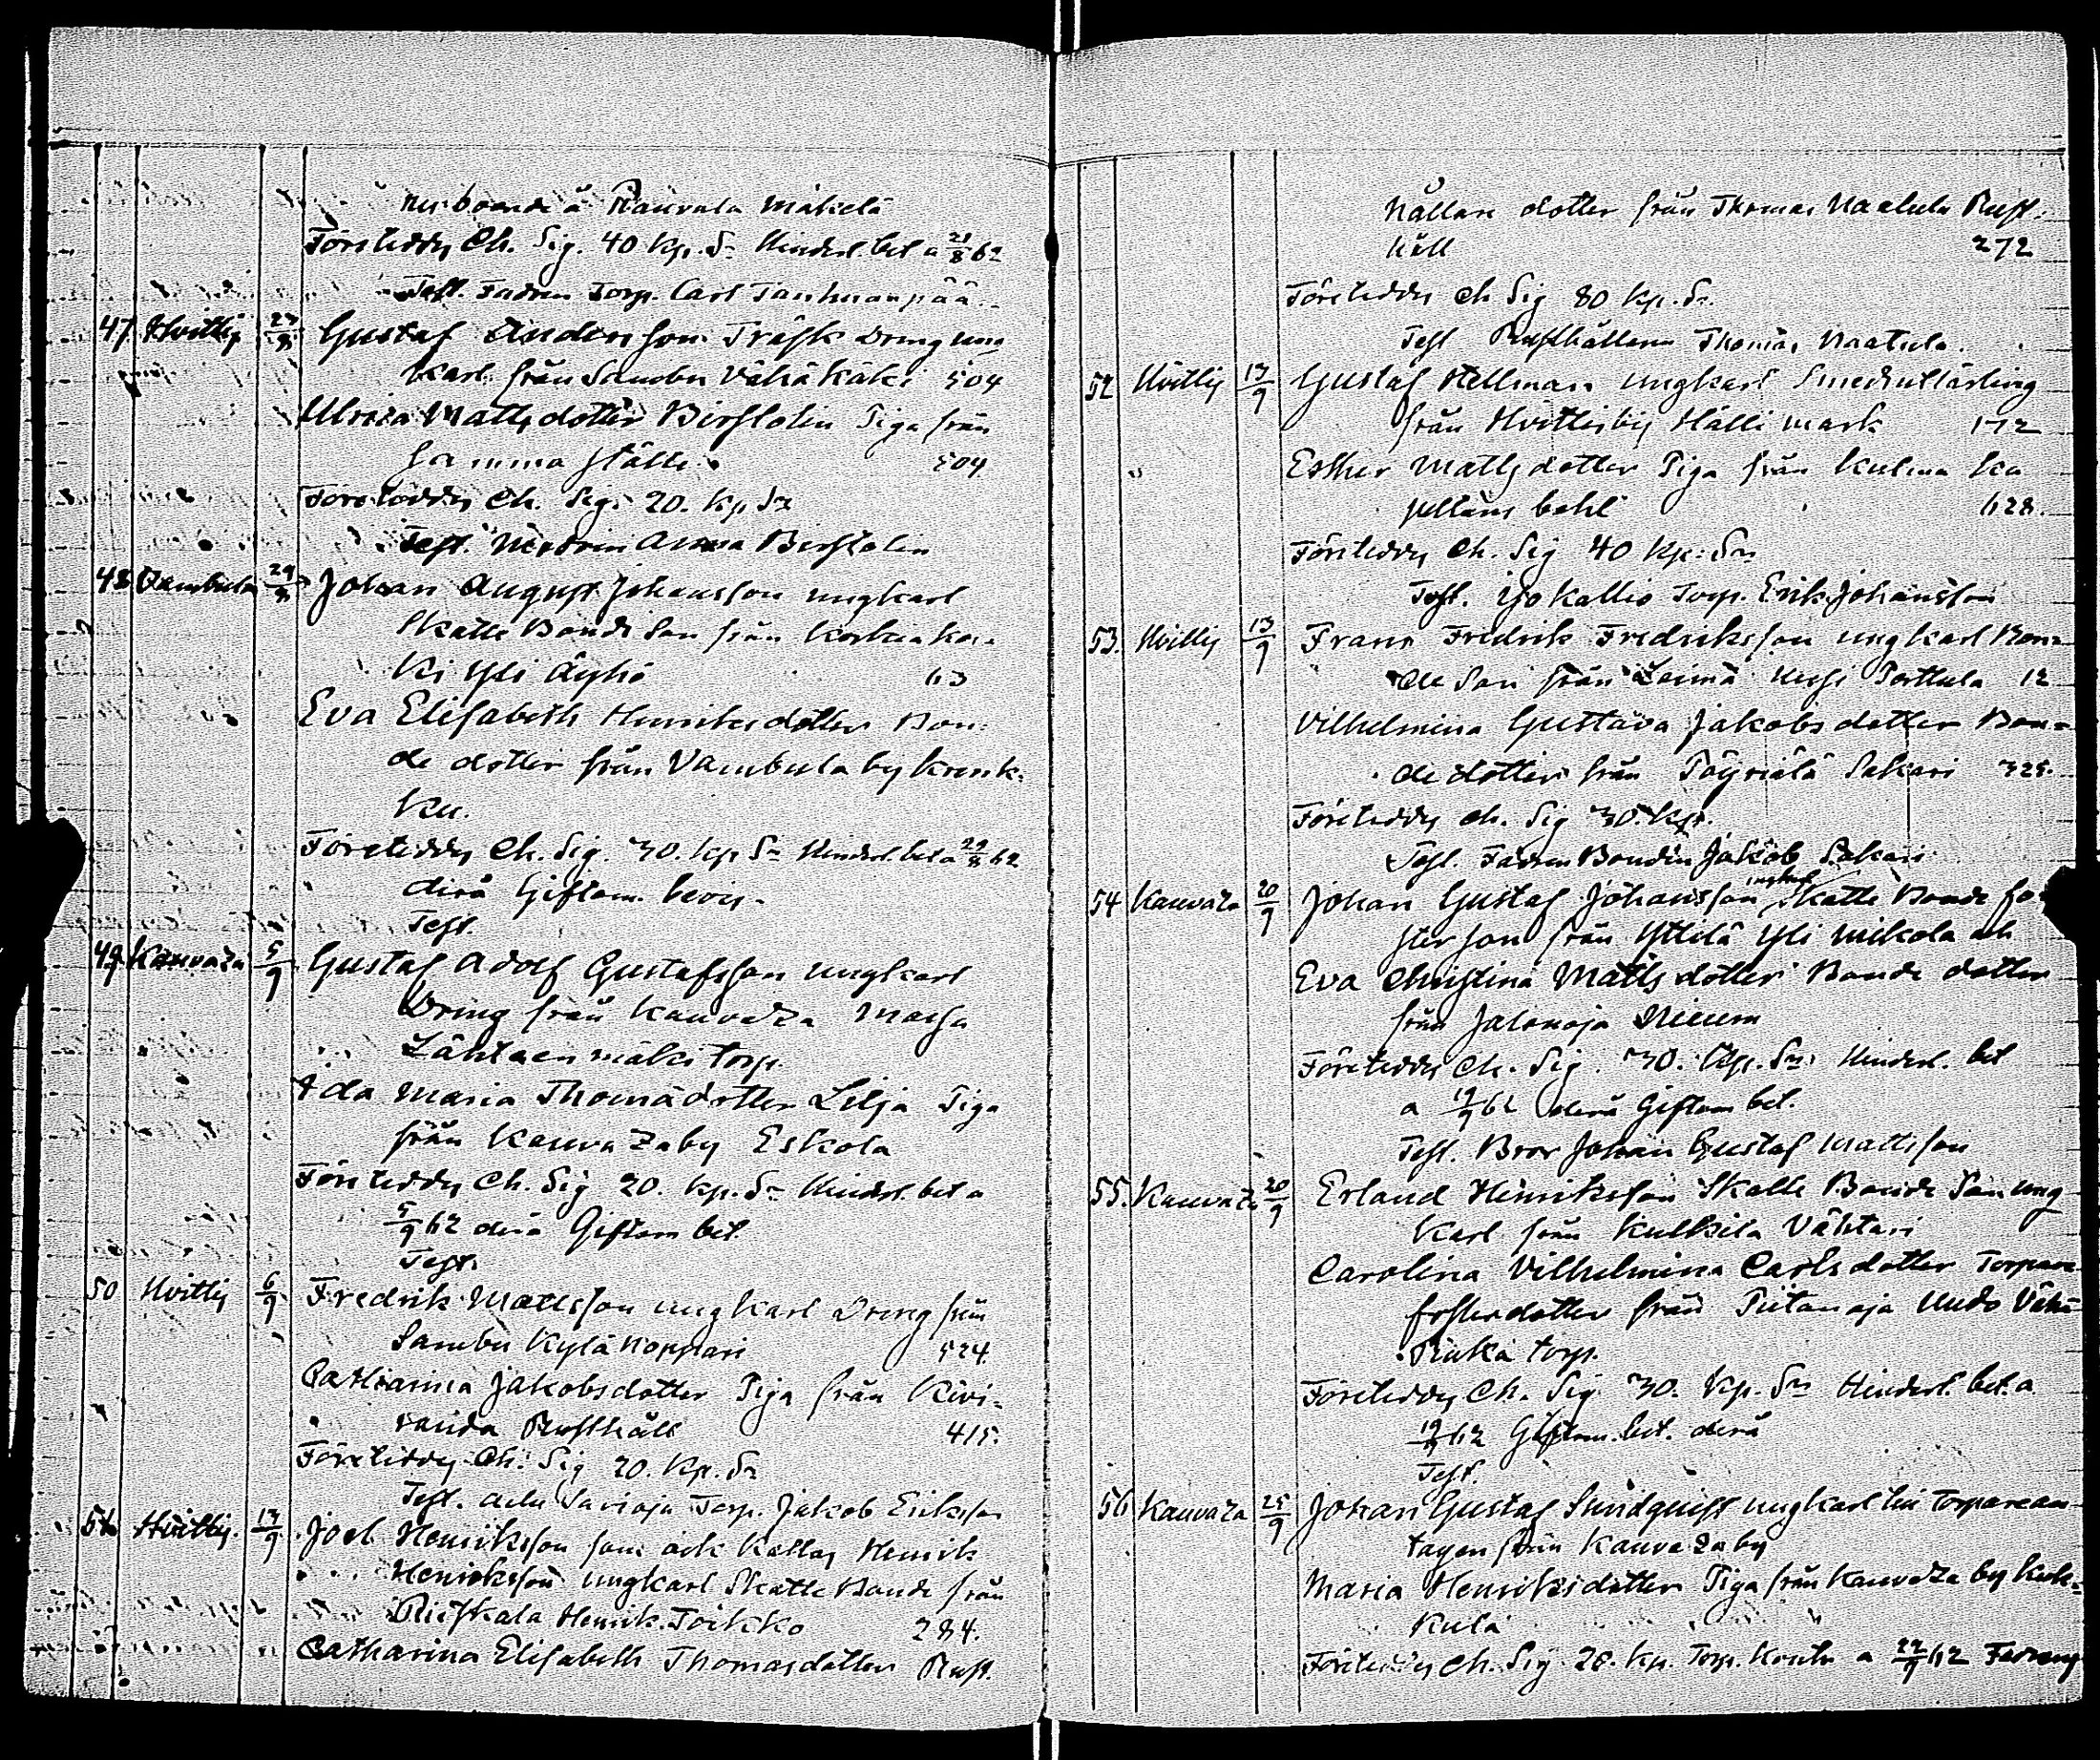 boende å Rauvala Mäkelä
Företeddes Ch. Sig. 40 Kp. Sr Hindersl. bet a 21/8 62
Test. Fadren Torp. Carl Tanhuanpää
47 Hvittis Gustaf Andersson Träsk Dreng ung
karl från Sambu Vähä Käki 504
Ulrica Mattsdotter Birstolin Piga från
samma ställe 504
Företeddes Ch. Sig. 20. Kp Sr
Test. Modren Anna Birstolin
48 Vambula Johan August Johansson ungkarl
Skatte Bonde Son från Korkiakos-
ki Yli Äyhö 63
Eva Elisabeth Henriksdotter Bon-
de dotter från Vambula by Krenk-
ku.
Företeddes Ch. Sig. 30. Kp Sr Hindersl. bet a 29/8 62
derå Giftom. bevis.
Test.
49 Kauvaza 5/9 Gustaf Adolf Gustafsson ungkarl
Dreng från Kauvaza
Lähteenmäki torp.
Ida Maria Thomädotter Lilja Piga
från Kauvazaby Eskola
Företeddes Ch. Sig 20. Kp. Sr Hindersl. bet a
5/9 62 derå Giftom bet.
Test.
50 Hvittis 6/9 Fredrik Mattsson ungkarl Dreng från
Sambu Kylä Koppari 524.
Catharina Jakobsdotter Piga från Kivi-
randa Rusthåll 415.
Företeddes Ch. Sig 20. Kp. Sr
Test. Savioja Torp. Jakob Eriksson
51 Hvittis 13/9 Joel Henriksson som ock kallas Henrik
Henriksson ungkarl Skatte Bonde från
Rieskala Henrik Toikko 284.
Catharina Elisabeth Thomasdotter Rust.
hållare dotter från Thomas Naatula Rust.
håll 272
Företeddes Ch Sig 80 Kp. Sr.
Test Rusthållaren Thomas Naatula.
52 Hvittis 13/9 Gustaf Hellman ungkarl Smedslärling
från Hvittisby Hälli mark 172
" Esther Mattsdotter Piga från Kulma Ka
pellans bohl 628.
Företeddes Ch. Sig 40 Kp. Sr
Test. Yokallio Torp. Erik Johansson
53. Hvittis 13/9 Frans Fredrik Fredriksson ungkarl Bon-
de Son från Loimä Perttula 12
Vilhelmina Gustava Jakobsdotter Bon-
de dotter från Pöyriälä Sakari
Företeddes Ch. Sig 30. Kp.
Test. Fadren Bonden Jakob Sakari
54 Kauvaza 20/9 Johan Gustaf Johansson ungkarl Skatte Bonde fo-
ster son från Yttilä Yli Mikola och
Eva Christina Mattsdotter Bonde dotter
från Jalonoja Nieem
Företeddes Ch. Sig. 30. Kp. Sr. Hindersl. bet
a 19/9 62 derå Giftom bet.
Test. Bror Johan Gustaf Mattsson
55. Kauvaza 20/9 Erland Henriksson Skatte Bonde Son ung
karl från Kulkila Vähtari
Carolina Vilhelmina Carlsdotter Torpare
fosterdotter från Piitanoja Uudo Vähä
Rinka torp.
Företeddes Ch. Sig. 30. Kp. Sr Hindersl. bet. a
19/9 62 Giftom. bet. derå
Test.
56 Kauvaza 25/9 Johan Gustaf Sundquist ungkarl Torparean-
tagen från Kauvazaby
Maria Henriksdotter Piga från Kauvaza by Kuk-
kula
Företeddes Ch. Sig. 20. Kp. Torp. a 22/9 62 Fadrens